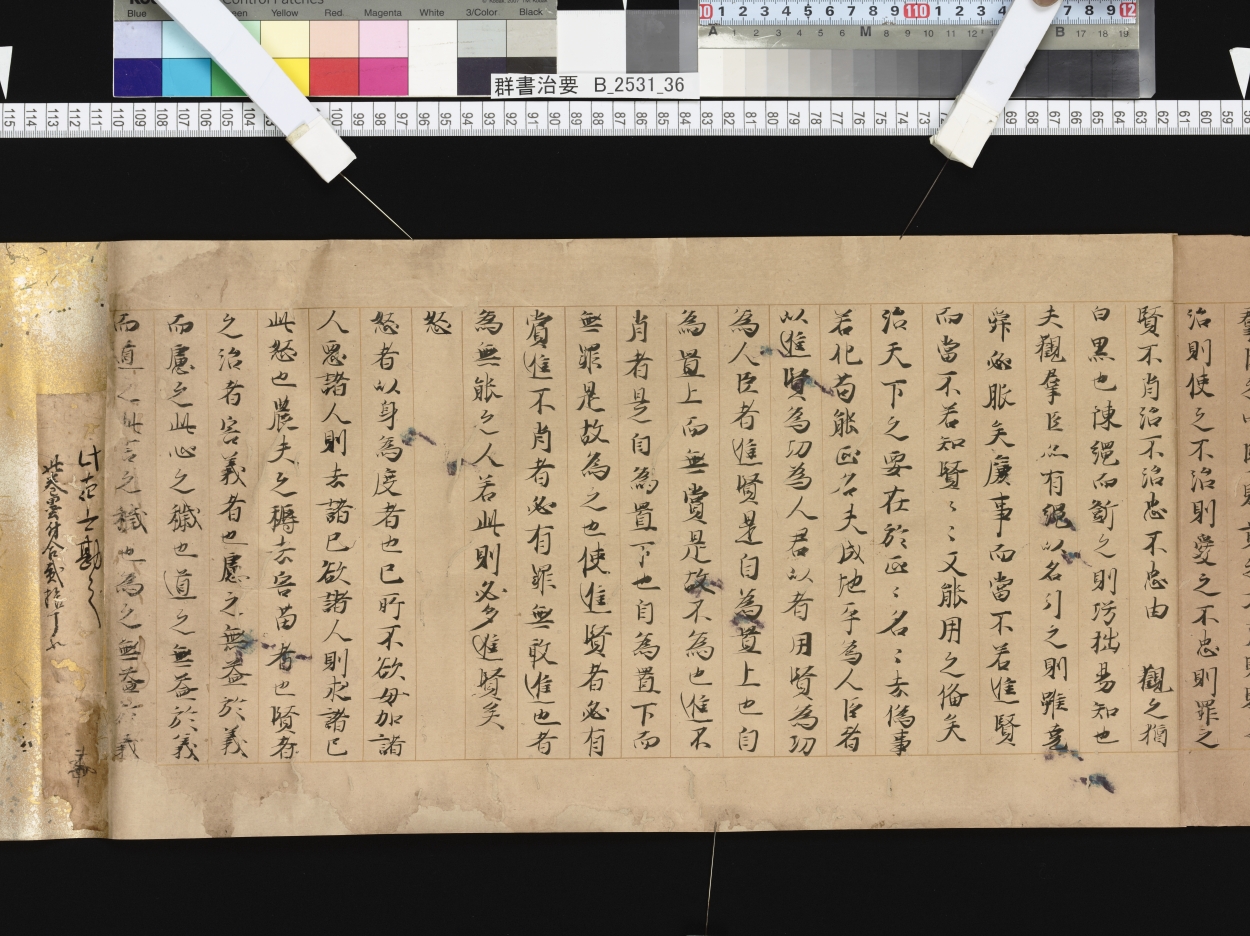 Blue
Yellow
Red
Magenta
White
3/Color
Black
群書治要 B_2531_36
治則使之不治則愛之不忠則罪之
賢不肖治不治忠不忠由 觀之猶
白黒也陳繩而斵之則巧拙易知也
夫觀羣臣亦有繩以名引之則雖堯
舜必服矣慮事而當不若進賢
而當不若知賢〻〻又能用之俻矣
治天下之要在於正〻名〻去偽事
若化苟能正名天成地平為人臣者
以進賢為功為人君以者用賢為功
為人臣者進賢是自為置上也自
為置上而無賞是故不為也進不
肖者是自為置下也自為置下而
無罪是故為之也使進賢者必有
賞進不肖者必有罪無敢進也者
為無能之人若此則必多進賢矣
恕
恕者以身為度者也已所不欲毋加諸
人惡諸人則去諸已欲諸人則求諸已
此恕也農夫之耨去害苗者也賢者
之治者害義者也慮之無益於義
而慮之此心之穢也道之無益於義
而道之此言之穢也為之無益於義